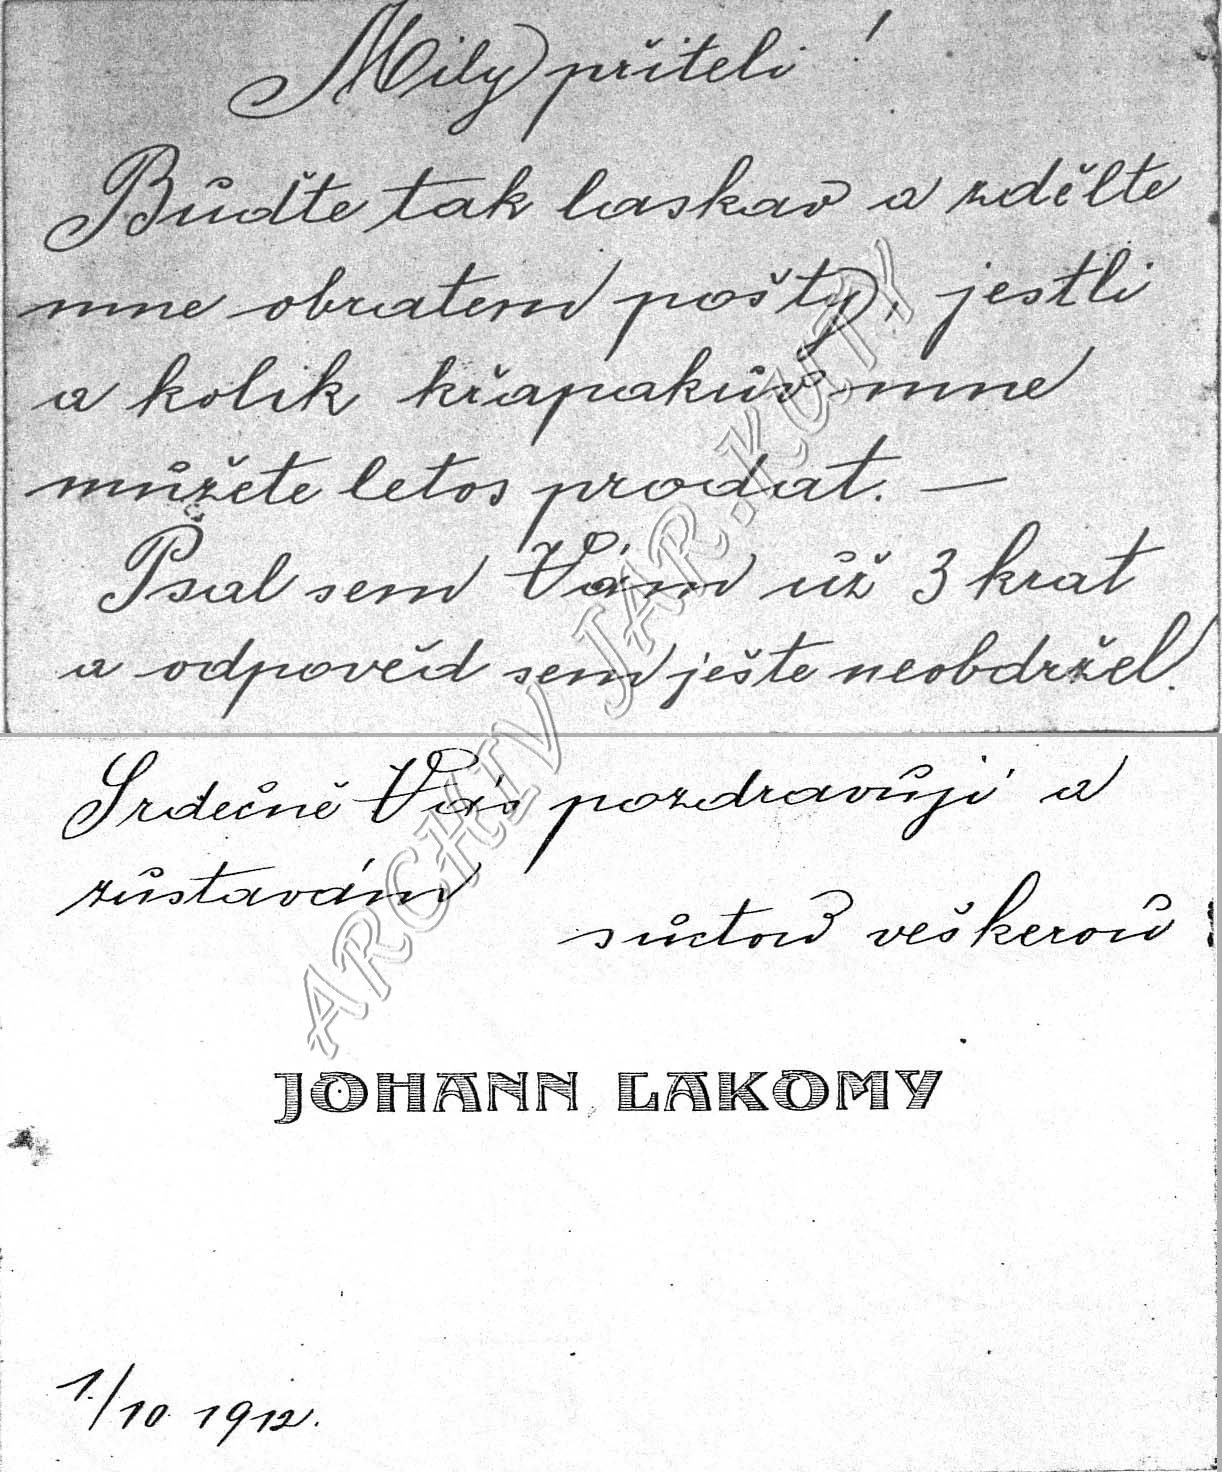 Mily přiteli!
Bůďte tak laskav a zdělte
mne obratem pošty, jestli
a kolik křapakův mne
můžete letos prodat. —
Psal sem Vám už 3 krat
a odpověd sem ješte neobdržel.
Srdečně Vás pozdravůji a
zůstavám
sůctou veškeroů
JOHANN LAKOMY
1./10. 1912.
ARCHIV JAR. KUTÝ